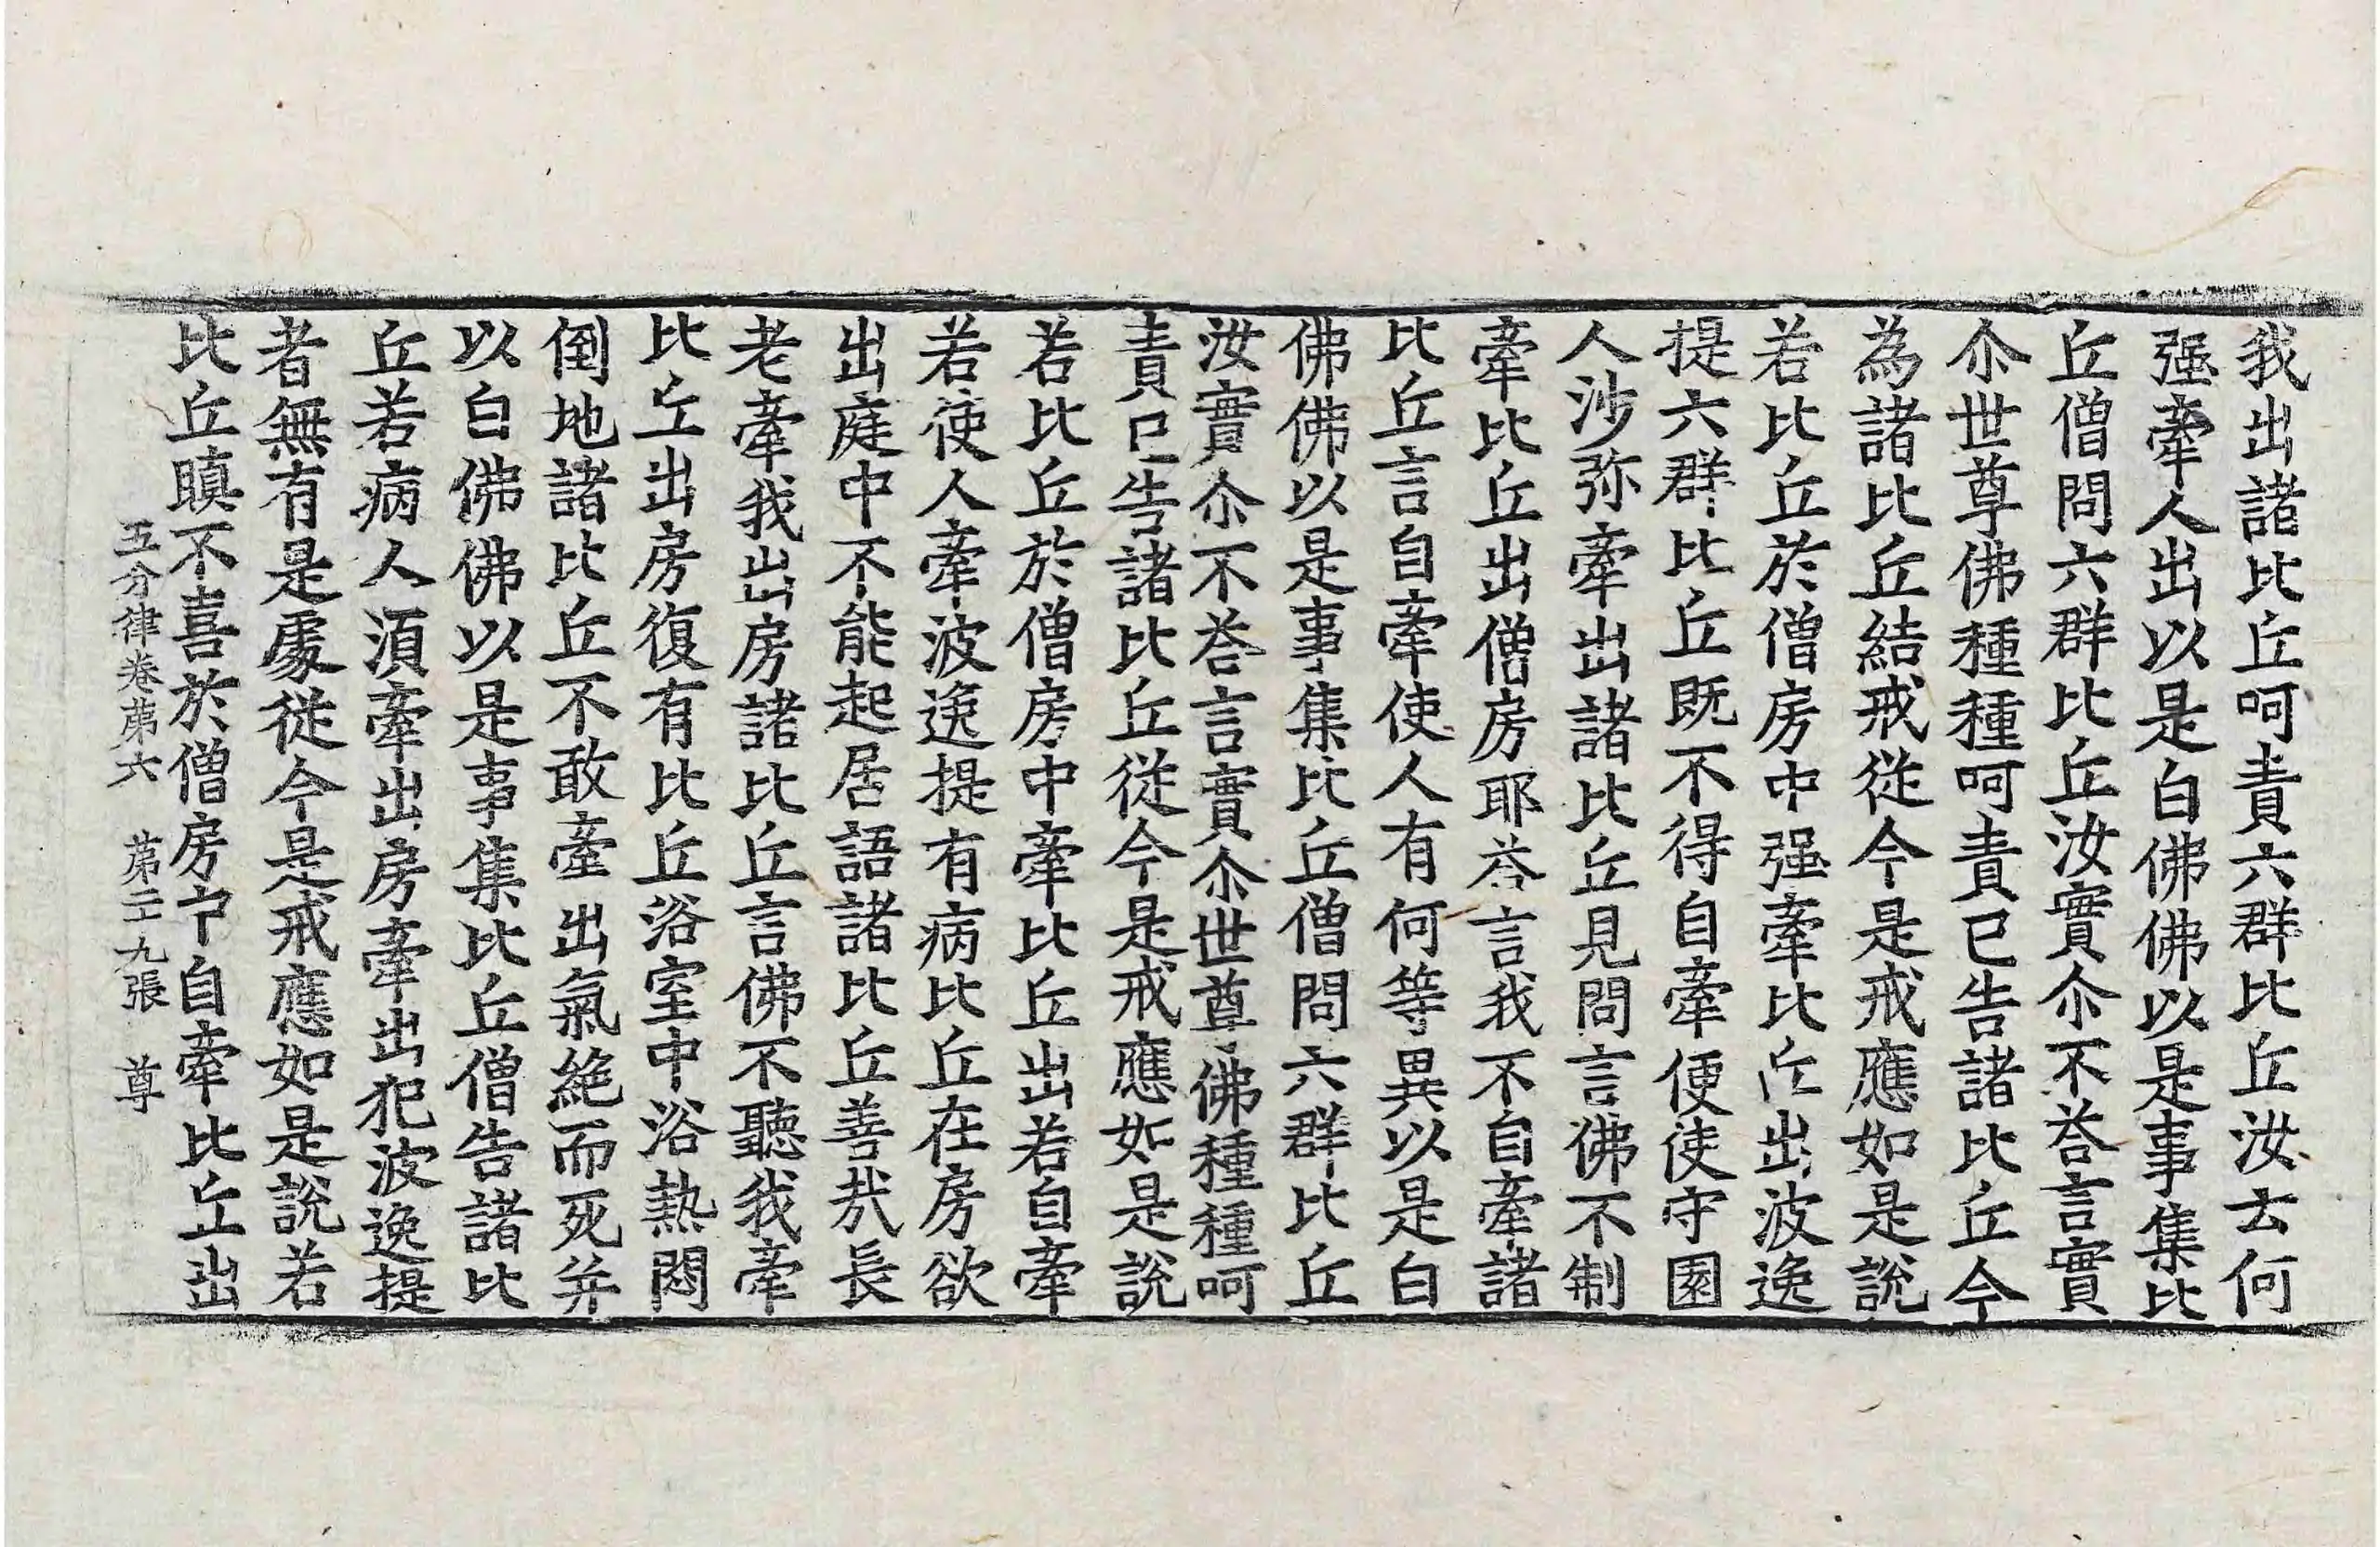 我出諸比丘呵責六群比丘汝去何
强牽人出以是白佛佛以是事集比
丘僧問六群比丘汝實尒不荅言實
尒世尊佛種種呵責已告諸比丘今
為諸比丘結戒從今是戒應如是說
若比丘於僧房中强牽比丘出波逸
提六群比丘既不得自牽便使守園
人沙弥牽出諸比丘見問言佛不制
牽比丘出僧房耶荅言我不自牽諸
比丘言自牽使人有何等異以是白
佛佛以是事集比丘僧問六群比丘
汝實尒不荅言實尒世尊佛種種呵
責已告諸比丘從今是戒應如是說
若比丘於僧房中牽比丘出若自牽
若使人牽波逸提有病比丘在房欲
出庭中不能起居語諸比丘善㢤長
老牽我出房諸比丘言佛不聽我牽
比丘出房復有比丘浴室中浴熱悶
倒地諸比丘不敢牽出氣絶而死并
以白佛佛以是事集比丘僧告諸比
丘若病人湏牽出房牽出犯波逸提
者無有是處從今是戒應如是說若
比丘瞋不喜於僧房中自牽比丘出
五分律卷苐六 苐二十九張 尊